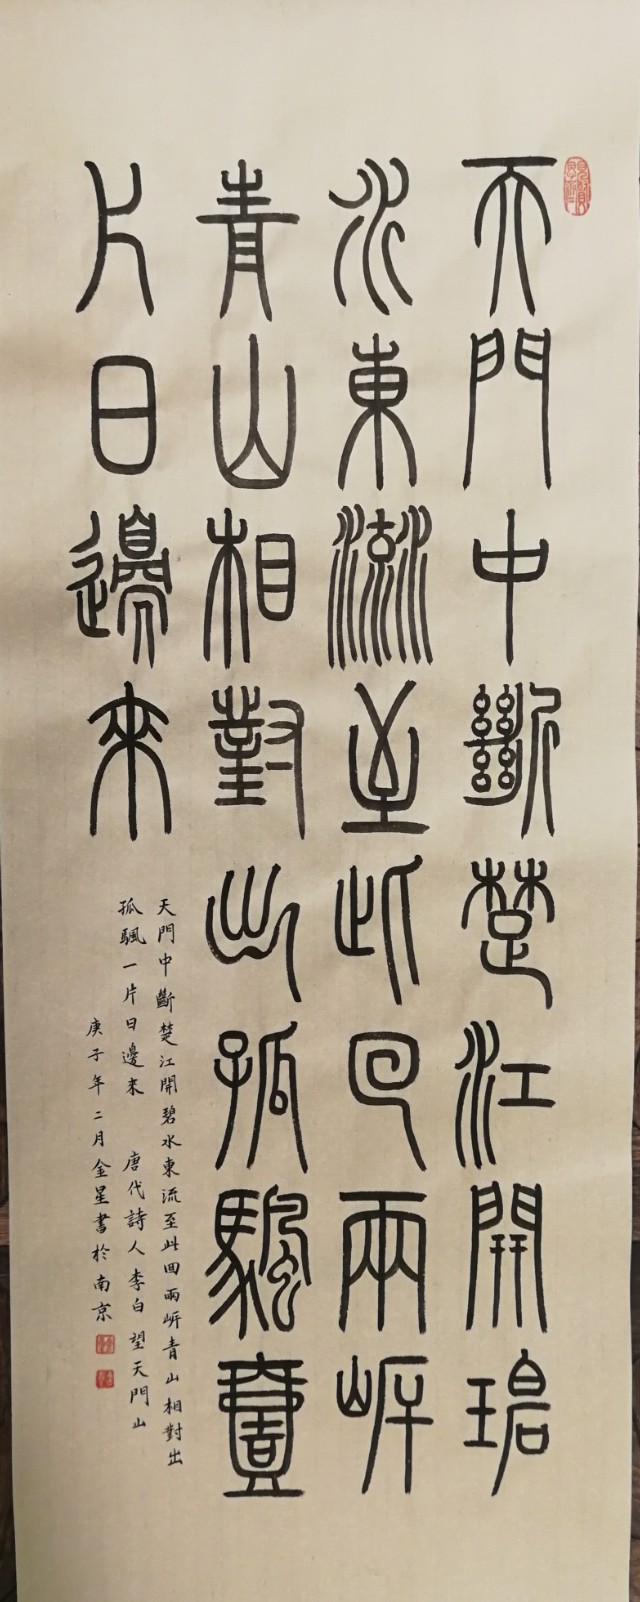 天門中斷楚江開碧
水東流至此回兩岸
青山相對出孤颿壹
片日邊來
天門中斷楚江開碧水東流至此回兩岸青山相對出
孤颿一片日邊来 唐代詩人李白望天門山
庚子年二月金星書於南京